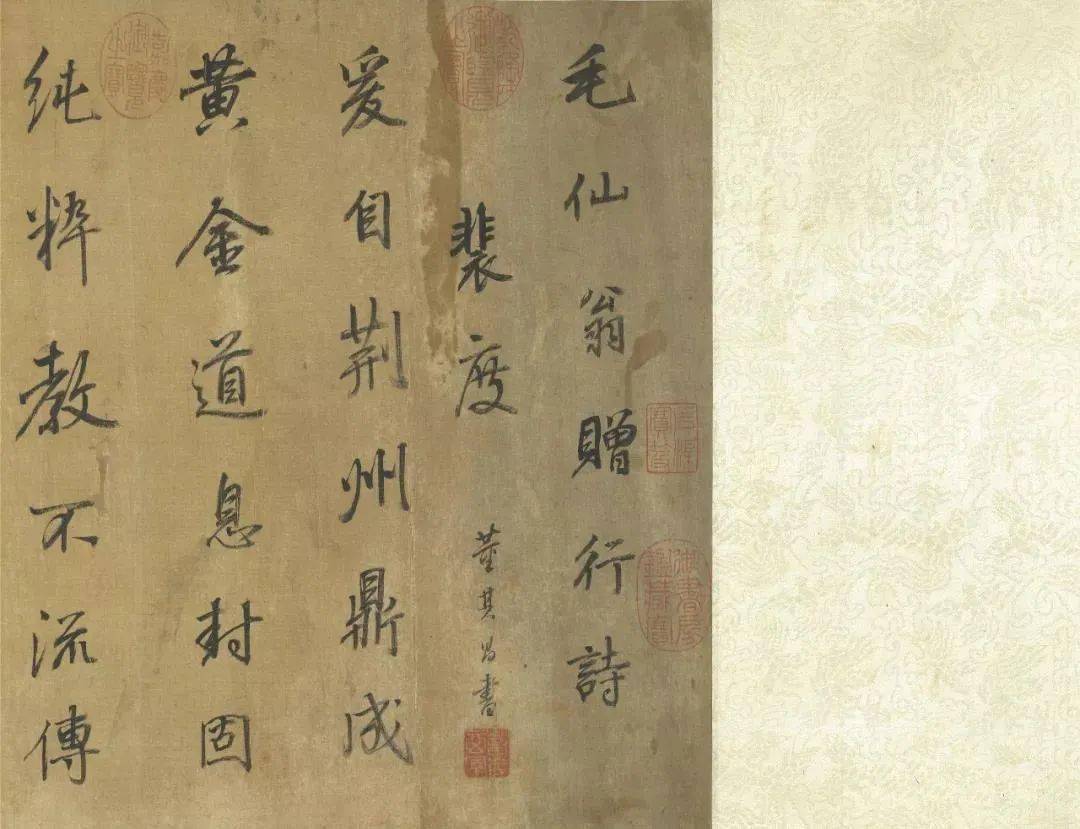 毛仙翁贈行詩
裴度
董其昌書
爰自荆州鼎成
黃金道息封固
純粹教不流傳